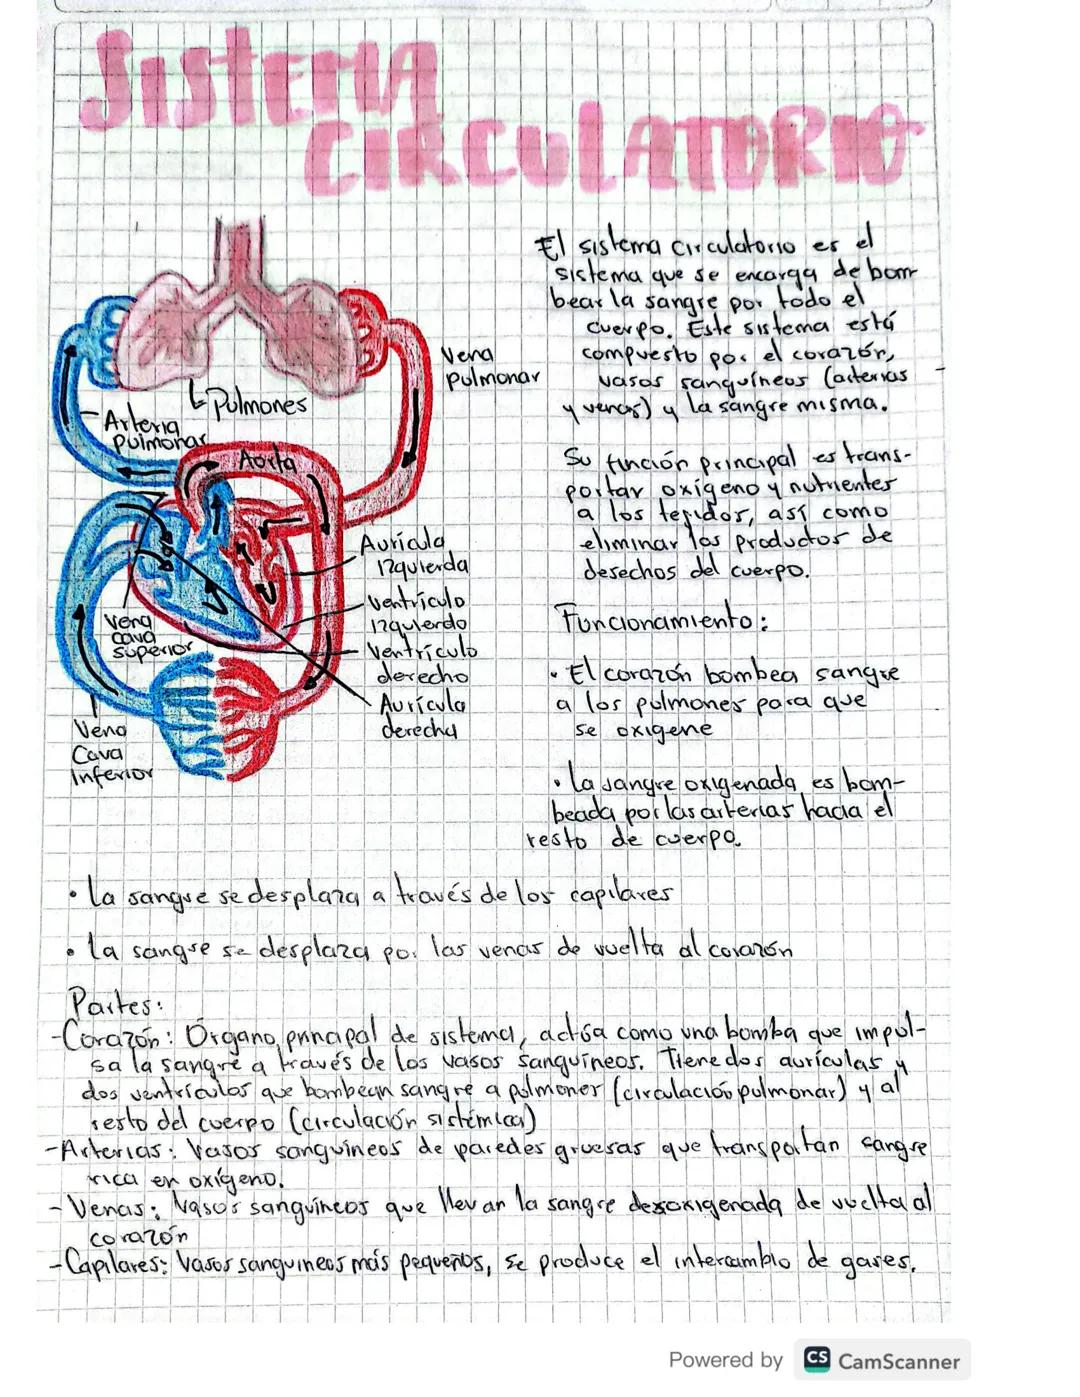 SISTEMA
CIRCULATORIO
El sistema circulatorio es el
sistema que se encarga de bom-
bear la sangre por todo el
cuerpo. Este sistema está
compuesto por el corazón,
vasos sanguíneos (arterias
y venas) y la sangre misma.
Vena
pulmonar
Pulmones
Arteria
pulmonar
Aorta
Su función principal es trans-
portar oxígeno y nutrientes
a los tejidos, así como
eliminar los productos de
desechos del cuerpo.
Aurícula
izquierda
Ventrículo
izquierdo
Ventrículo
derecho
Aurícula
derecha
Vena
cava
superior
Vena
Cava
Inferior
Funcionamiento:
• El corazón bombea sangre
a los pulmones para que
se oxigene
• La sangre oxigenada es bom-
beada por las arterias hacia el
resto de cuerpo.
• La sangre se desplaza a través de los capilares
• La sangre se desplaza por las venas de vuelta al corazón
Partes:
-Corazón: Órgano prinapal de sistema, actúa como una bomba que impul-
sa la sangre a través de los vasos sanguíneos. Tiene dos aurículas y
dos ventrículos que bombean sangre a pulmones (circulación pulmonar) y al
resto del cuerpo (circulación sistémica)
-Arterias: Vasos sanguíneos de paredes gruesas que transportan sangre
rica en oxígeno.
- Venas: Vasos sanguíneos que llevan la sangre desoxigenada de vuelta al
corazón
-Capilares: Vasos sanguineos más pequeños, se produce el intercambio de gases.
Powered by CS CamScanner